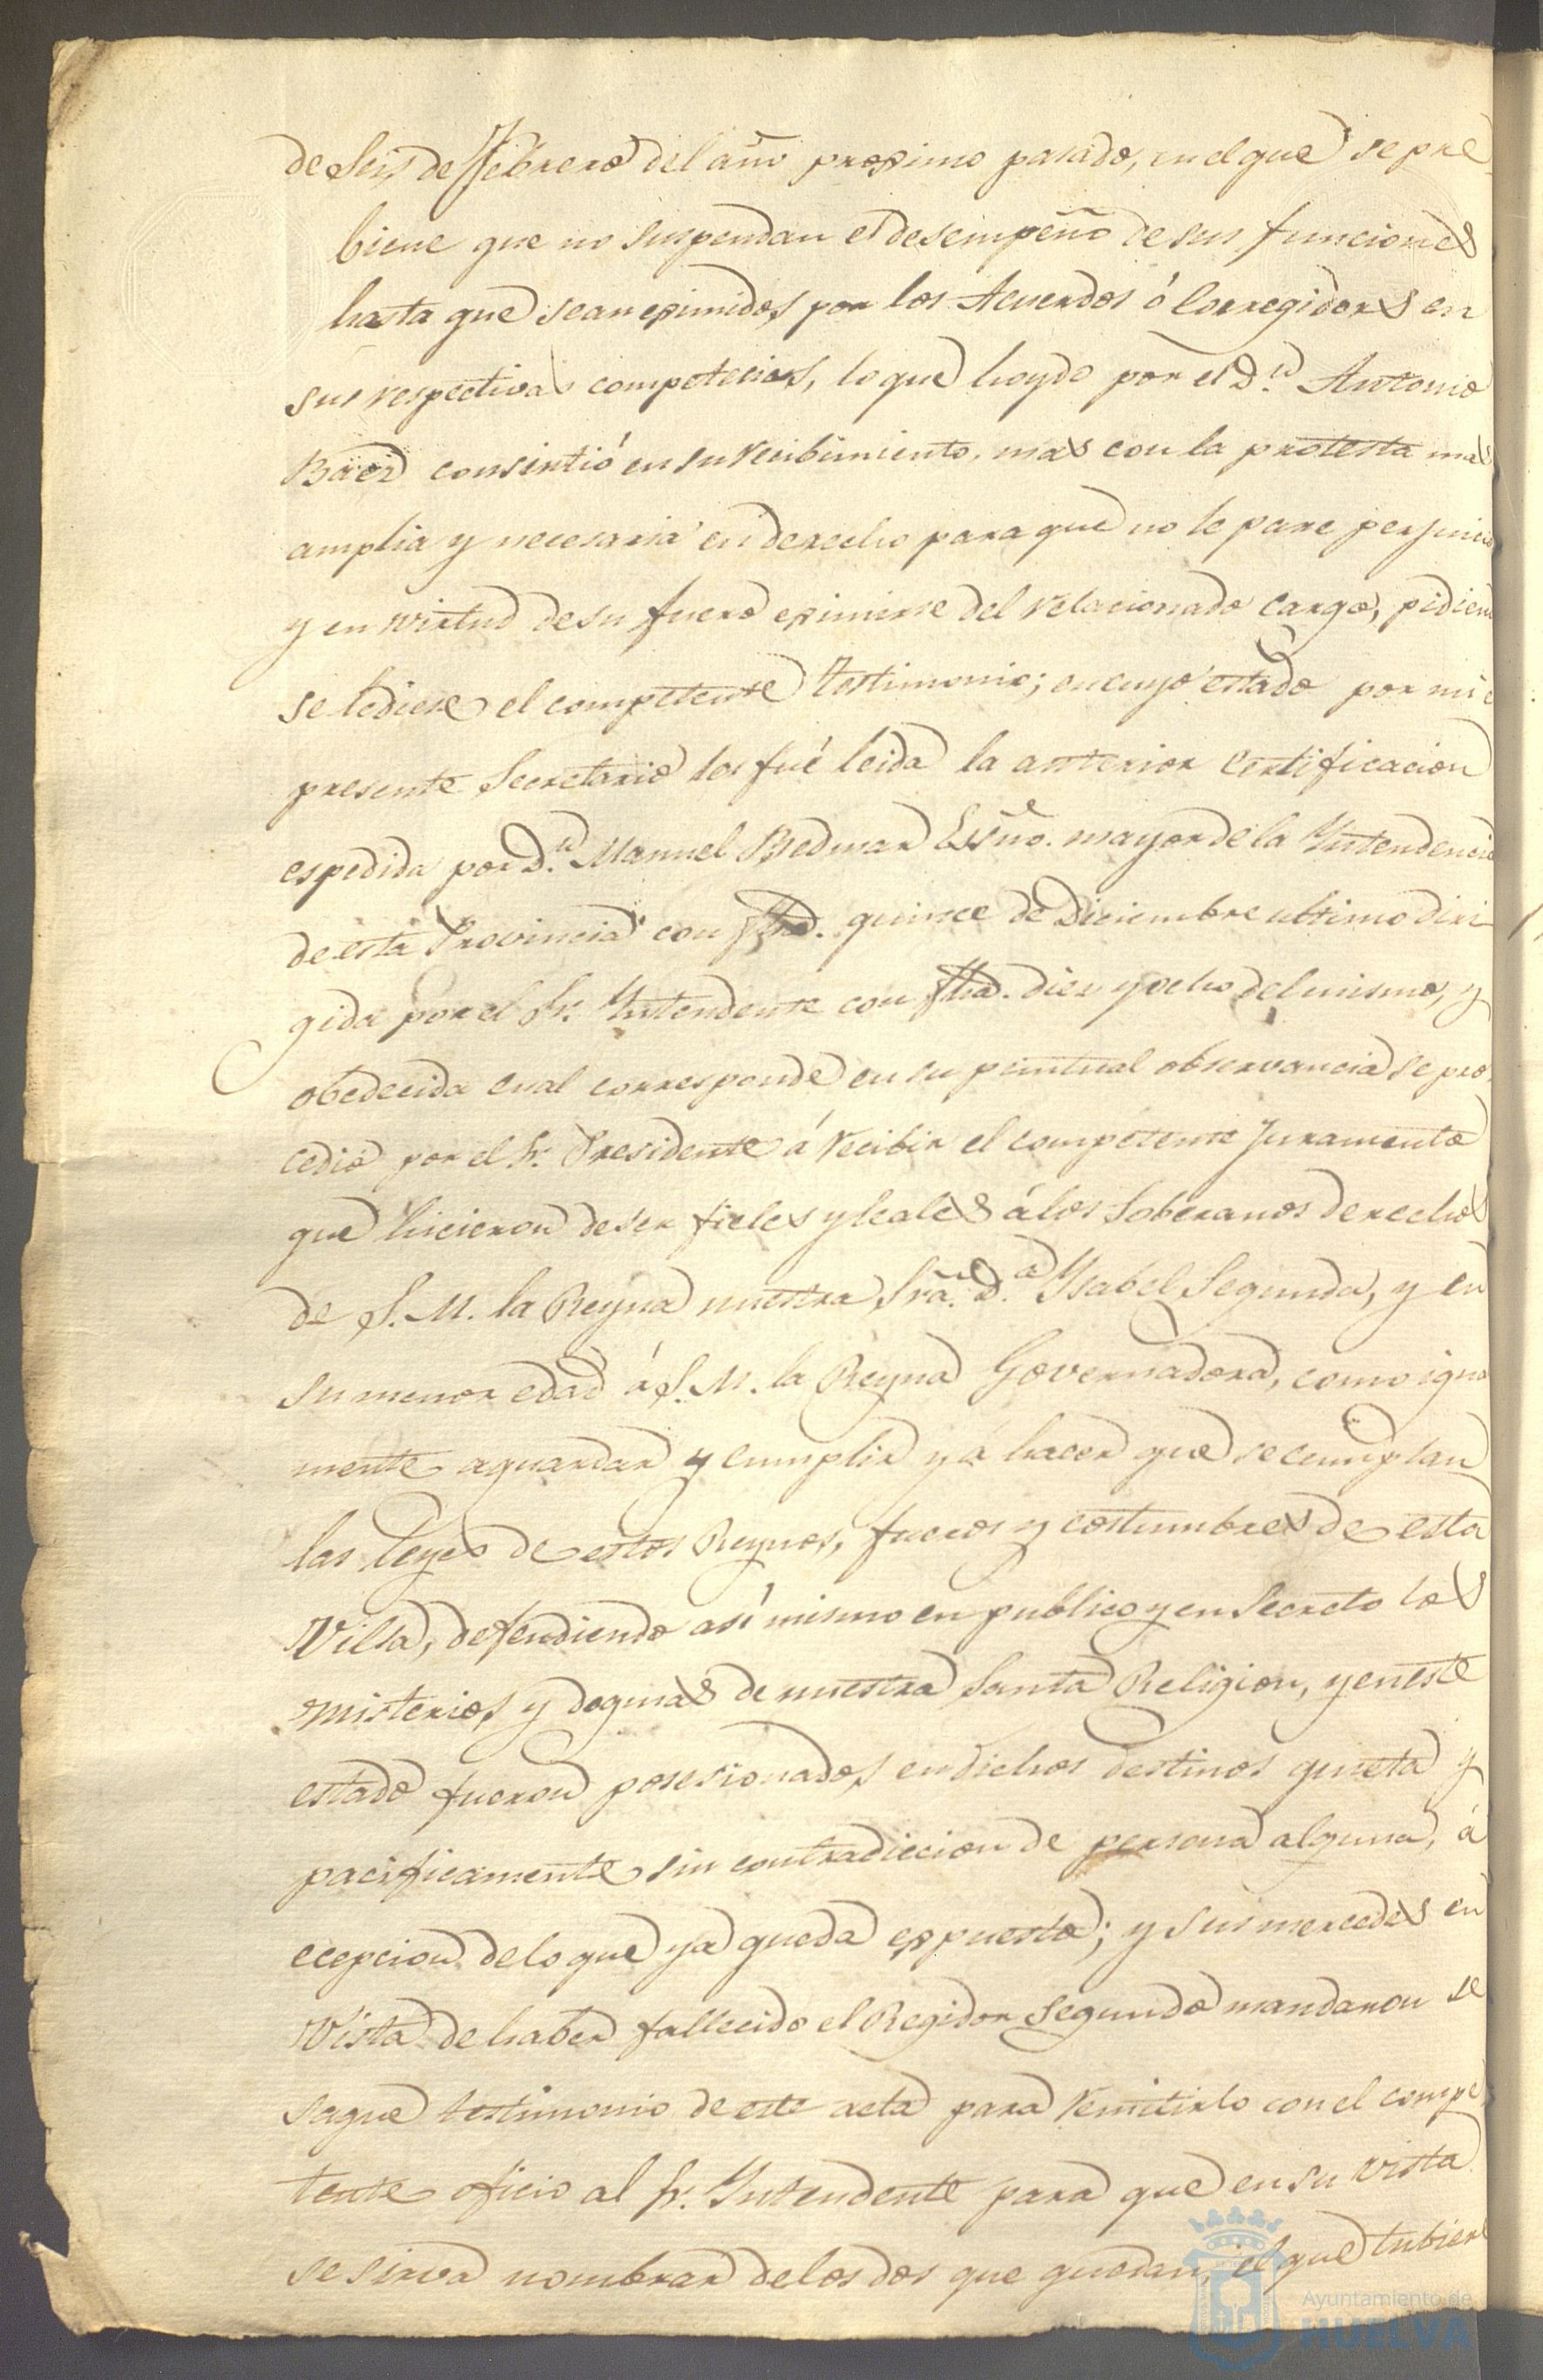 de Seis de Febrero del año proximo pasado, en el que se pre
biene que no suspendan el desempeño de sus funciones
hasta que sean eximidos por los Acuerdos ó Corregidores en
sus respectivas competecias, lo que hoydo por el D.n Antonio
Baez consintió en su recibimiento, mas con la protesta mas
amplia y necesaria en derecho para que no le pare perjuicio
y en virtud de su fuero eximirse del relacionado cargo, pidiendo
se le diese el competente testimonio; en cuyo estado por mi e
presente Secretario les fué leida la anterior certificacion
espedida por D.n Manuel Bedmar Essño. mayor de la Yntendencia
de esta Provincia con fha. quince de Diciembre ultimo diri
gida por el Sr. Yntendente con fha. diez y ocho del mismo, y
obedecida cual corresponde en su puntual observancia se pro
cedio por el Sr. Presidente á recibir el competente Juramento
que hicieron de ser fieles y leales á los Soberanos derechos
de S. M. la Reyna nuestra Sra. D.a Ysabel Segunda, y en
su menor edad á S. M. la Reyna Governadora, como igual
mente aguardar y cumplir y á hacer que se cumplan
las leyes de estos Reynos, fueros y costumbres de esta
Villa, defendiendo así mismo en publico y en Secreto los
misterios y dogmas de nuestra Santa Religion, y en este
estado fueron posesionados en dichos destinos quieta y
pacificamente sin contradiccion de persona alguna, á
ecepcion de lo que ya queda expuesto; y sus mercedes en
Vista de haber fallecido el Regidor Segundo mandaron se
saque testimonio de este acta para remitirlo con el compe
tente oficio al Sr. Yntendente para que en su vista
se sirva nombrar de los dos que quedan, el que tubiere
Ayuntamiento de
HUELVA